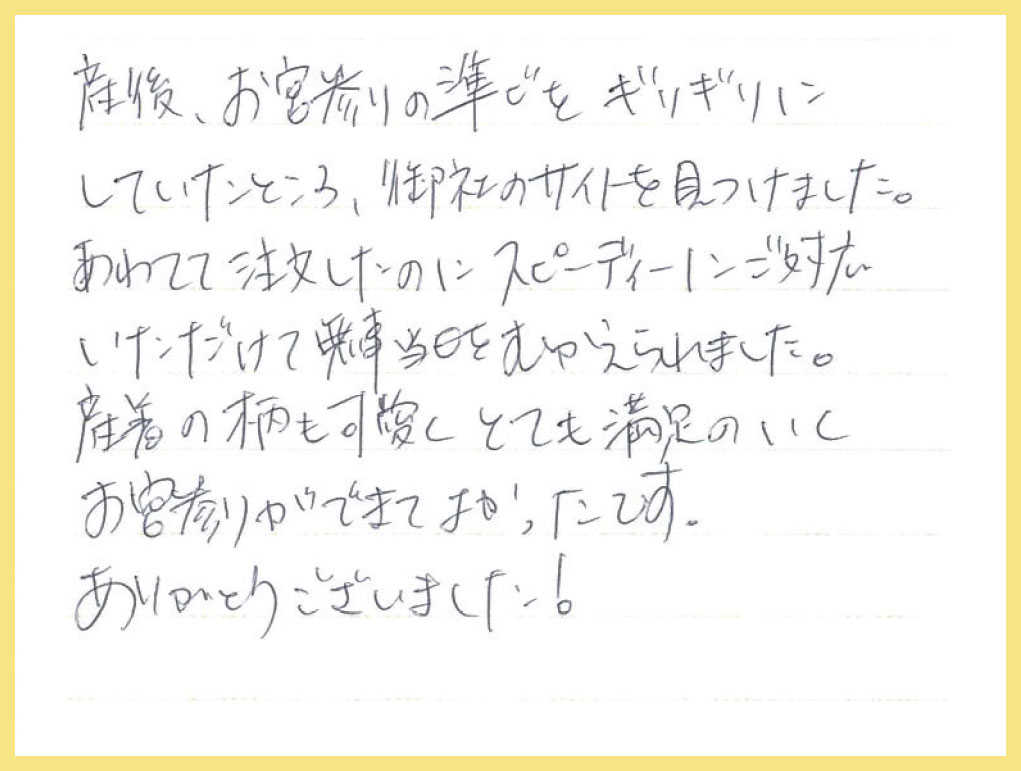 産後、お宮参りの準びを ギリギリに
していたところ、御社のサイトを見つけました。
あわてて注文したのに スピーディーにご対応
いただけて無事当日をむかえられました。
産着の柄も可愛く とても満足のいく
お宮参りができて よかったです。
ありがとうございました!